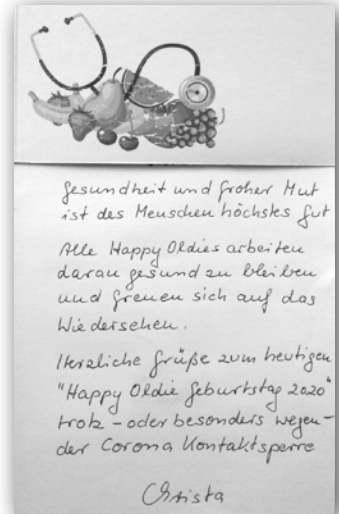 Gesundheit und froher Mut
ist des Menschen höchstes Gut
Alle Happy Oldies arbeiten
daran gesund zu bleiben
und freuen sich auf das
Wiedersehen.
Herzliche Grüße zum heutigen
"Happy Oldie Geburtstag 2020"
trotz - oder besonders wegen -
der Corona Kontaktsperre
Christa